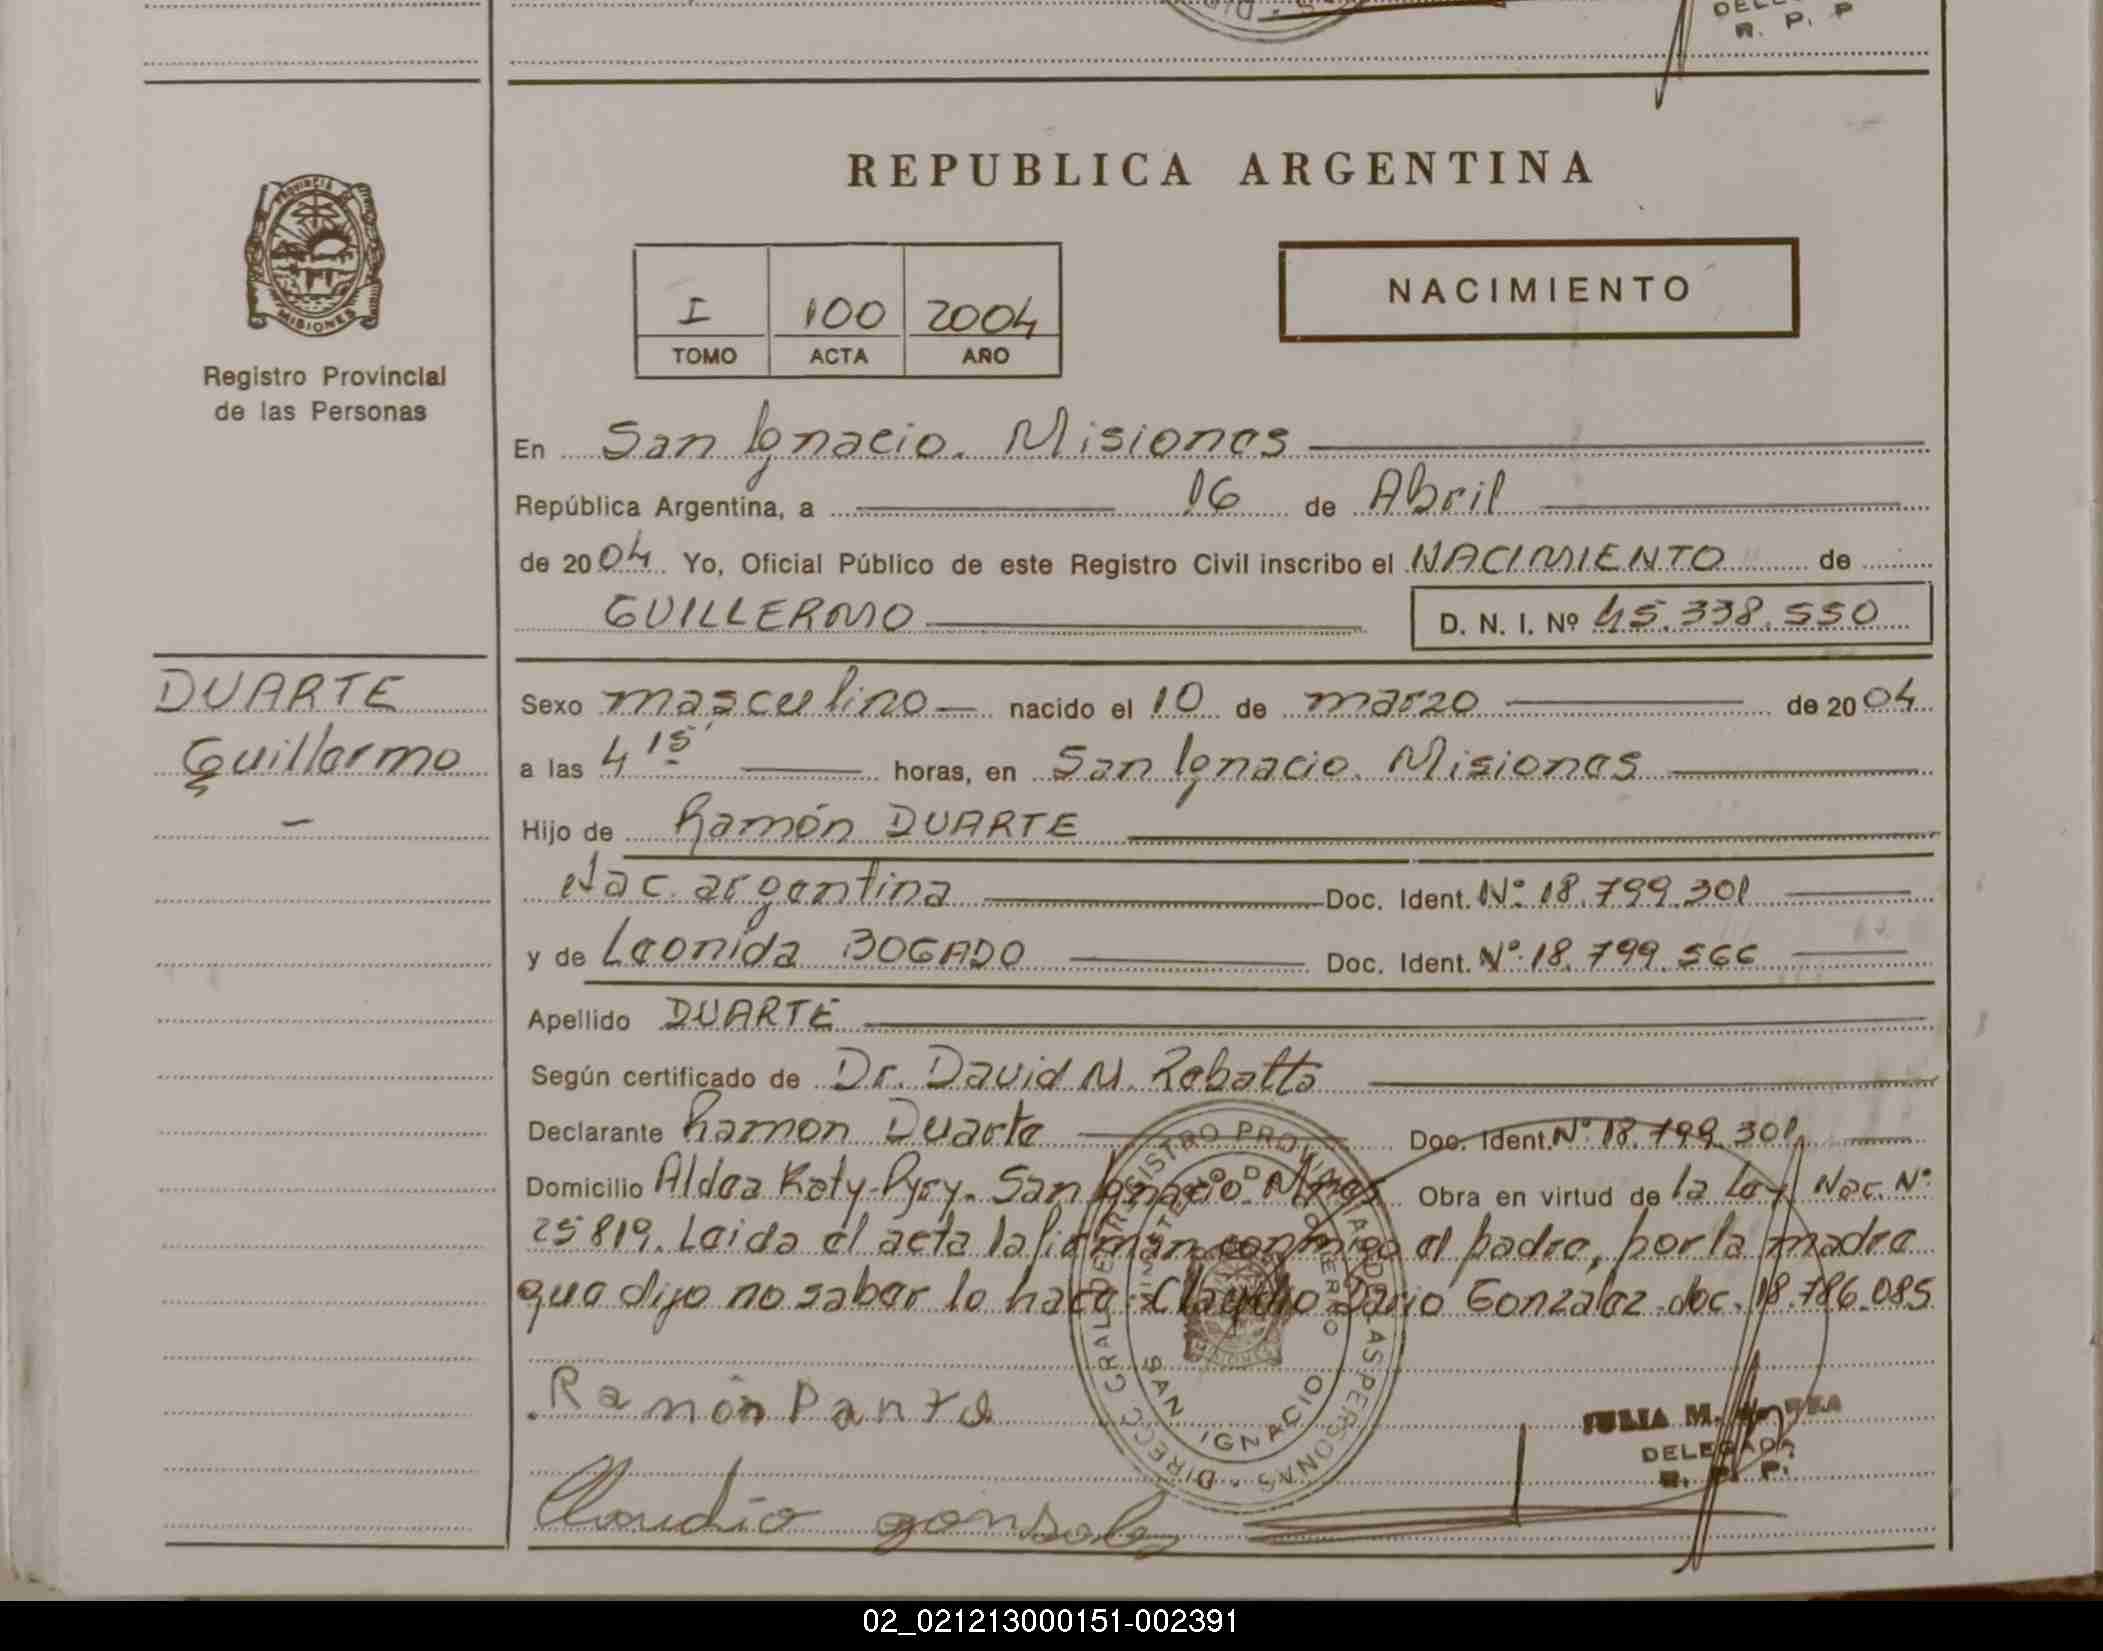 DELE
R. P. P
REPUBLICA ARGENTINA
PROVINCIA
MISIONES
Registro Provincial
de las Personas
I 100 2004
TOMO ACTA AÑO
NACIMIENTO
En San Ignacio. Misiones
República Argentina, a 16 de Abril
de 2004 Yo, Oficial Público de este Registro Civil inscribo el NACIMIENTO de
GUILLERMO D. N. I. Nº 45.338.550
DUARTE
Guillermo
Sexo masculino nacido el 10 de marzo de 2004
a las 4 15' horas, en San Ignacio. Misiones
Hijo de Ramón DUARTE
Nac. argentina Doc. Ident. Nº 18.799.301
y de Leonida BOGADO Doc. Ident. Nº 18.799.566
Apellido DUARTE
Según certificado de Dr. David M.
Declarante Ramon Duarte Doc. Ident. Nº 18.799.301
Domicilio Aldea Katy-Pyry. San Ignacio. Mnes Obra en virtud de la Ley Nac. Nº
25819. Leida el acta la firman conmigo el padre, por la madre
que dijo no saber lo hace: Claudio Dario Gonzalez. doc. 18.786.085
DIRECC GRAL DE REGISTRO PROVINCIAL DE LAS PERSONAS
MINISTERIO DE GOBIERNO
SAN IGNACIO
Ramón
JULIA M.
DELEGADA
R. P. P.
Claudio gonsalez
02_021213000151-002391